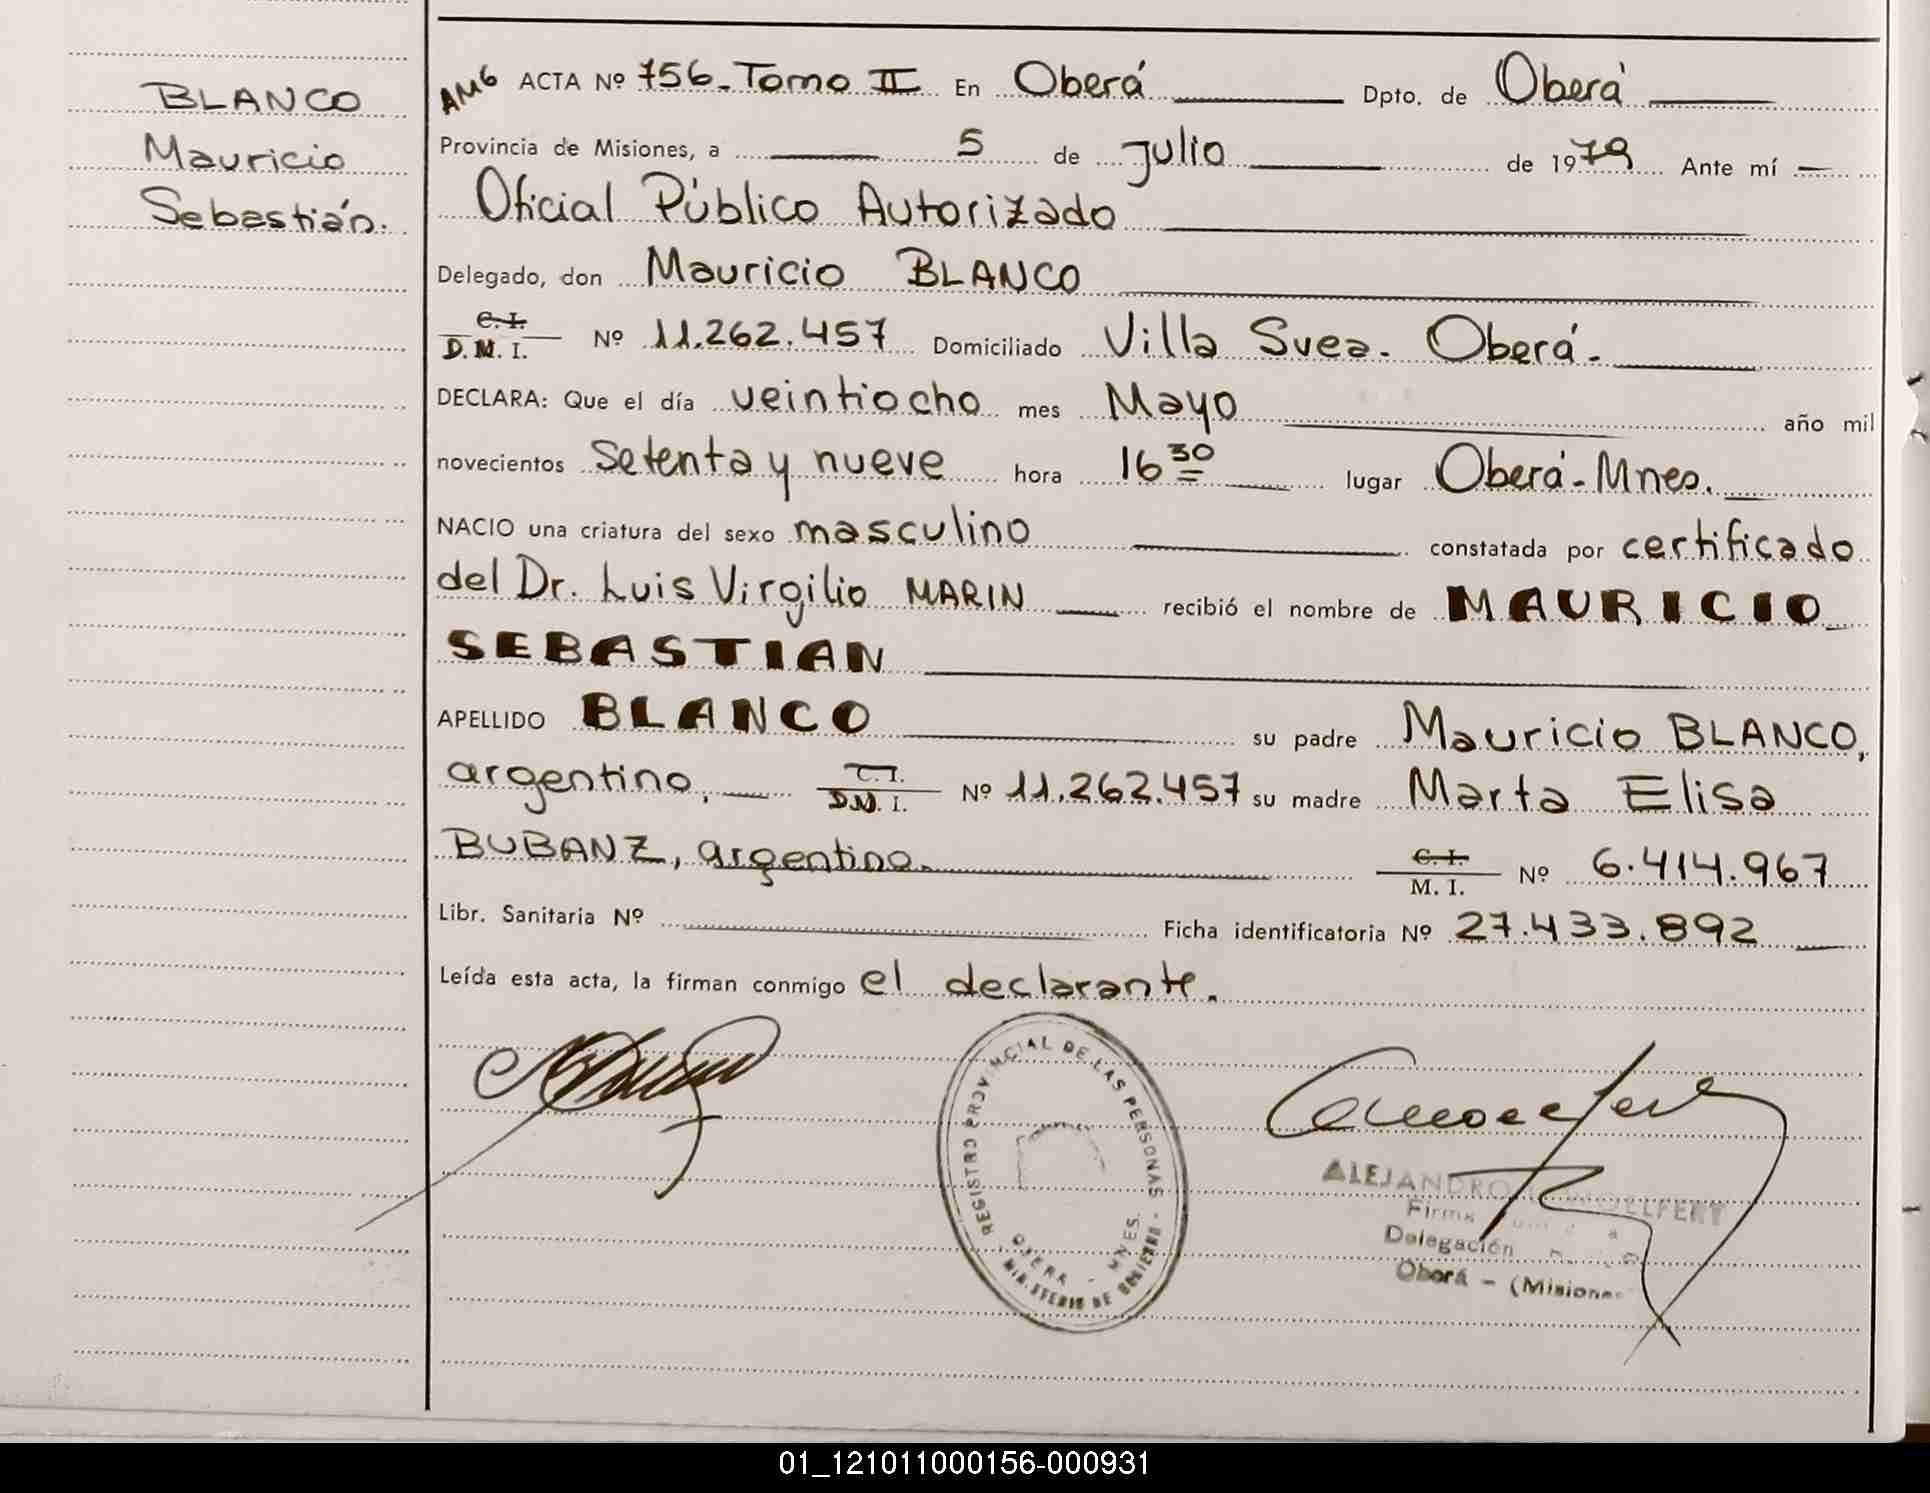 BLANCO
Mauricio
Sebastián.
AM6 ACTA Nº 756.- Tomo II En Oberá Dpto. de Oberá
Provincia de Misiones, a 5 de julio de 1979 Ante mí
Oficial Público Autorizado
Delegado, don Mauricio BLANCO
C. I.
D. M. I. Nº 11.262.457 Domiciliado Villa Svea. Oberá.
DECLARA: Que el día veintiocho mes Mayo año mil
novecientos setenta y nueve hora 16 30 lugar Oberá - Mnes.
NACIO una criatura del sexo masculino constatada por certificado
del Dr. Luis Virgilio MARIN recibió el nombre de MAURICIO
SEBASTIAN
APELLIDO BLANCO su padre Mauricio BLANCO,
argentino, C. I.
D.N. I. Nº 11.262.457 su madre Marta Elisa
BUBANZ, argentina. C. I.
M. I. Nº 6.414.967
Libr. Sanitaria Nº Ficha identificatoria Nº 27.433.892
Leída esta acta, la firman conmigo el declarante.
REGISTRO PROVINCIAL DE LAS PERSONAS
OBERA - MNES.
MINISTERIO DE GOBIERNO
ALEJANDRO WOELFERT
Firma
Delegación
Oberá - (Misiones
01_121011000156-000931